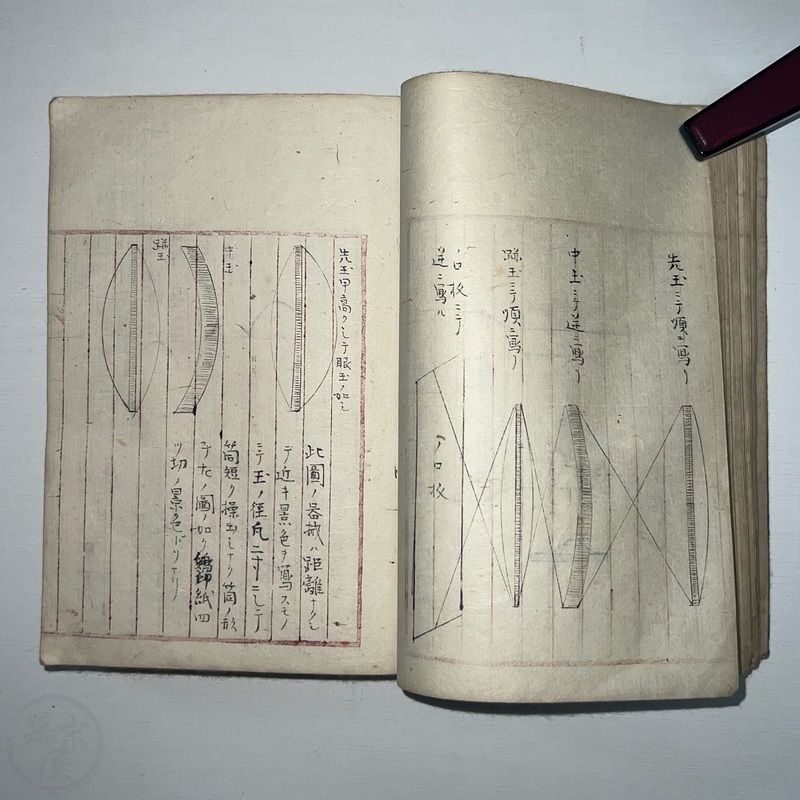 先玉ニテ順ニ寫ル
中玉ニテ逆ニ寫ル
跡玉ニテ順ニ寫ル
口板ニテ
逆ニ寫ル
口板
先玉甲高クシテ眼玉ノ如シ
中玉
跡玉
此圖ノ器械ハ距離ナクシ
テ近キ景色ヲ寫スモノ
ニテ玉ノ径凡二寸ニシテ
筒短ク操出シナク筒ノ形
チ左ノ圖ノ如ク紙四
ツ切ノ景色ドリナリ
幕末屋